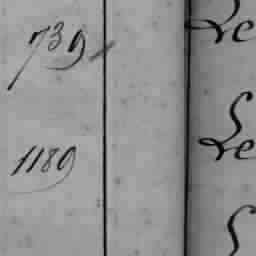 739
Le
1189
Le